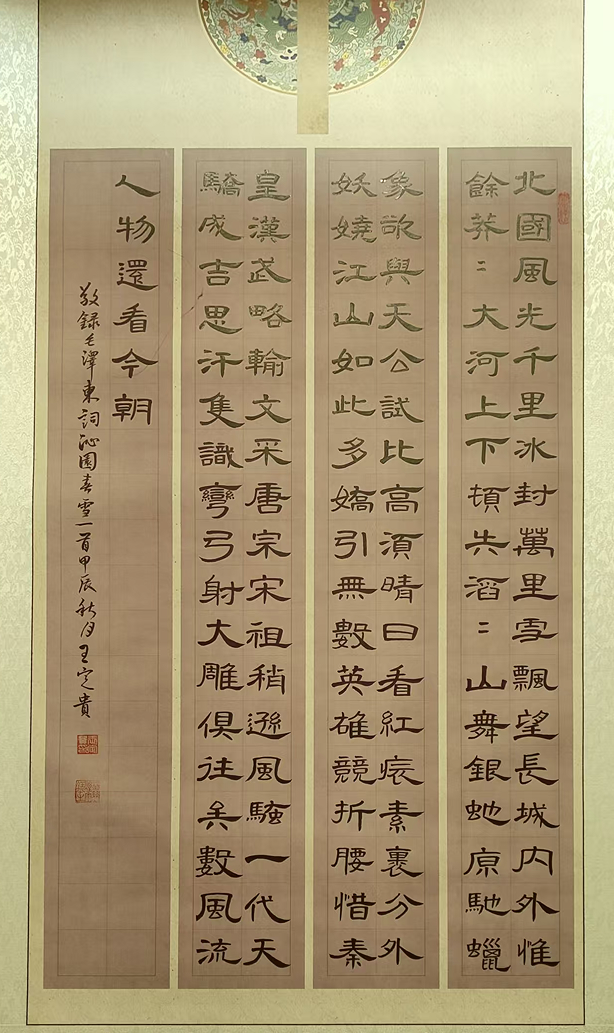 北國風光千里冰封萬里雪飄望長城内外惟
餘莽〻大河上下頓失滔〻山舞銀虵原馳蠟
象欲與天公試比高須晴日看紅裝素裹分外
妖嬈江山如此多嬌引無數英雄競折腰惜秦
皇漢武略輸文采唐宗宋祖稍遜風騷一代天
驕成吉思汗隻識彎弓射大雕俱往矣數風流
人物還看今朝
敬録毛澤東詞沁園春雪一首甲辰秋月王定貴